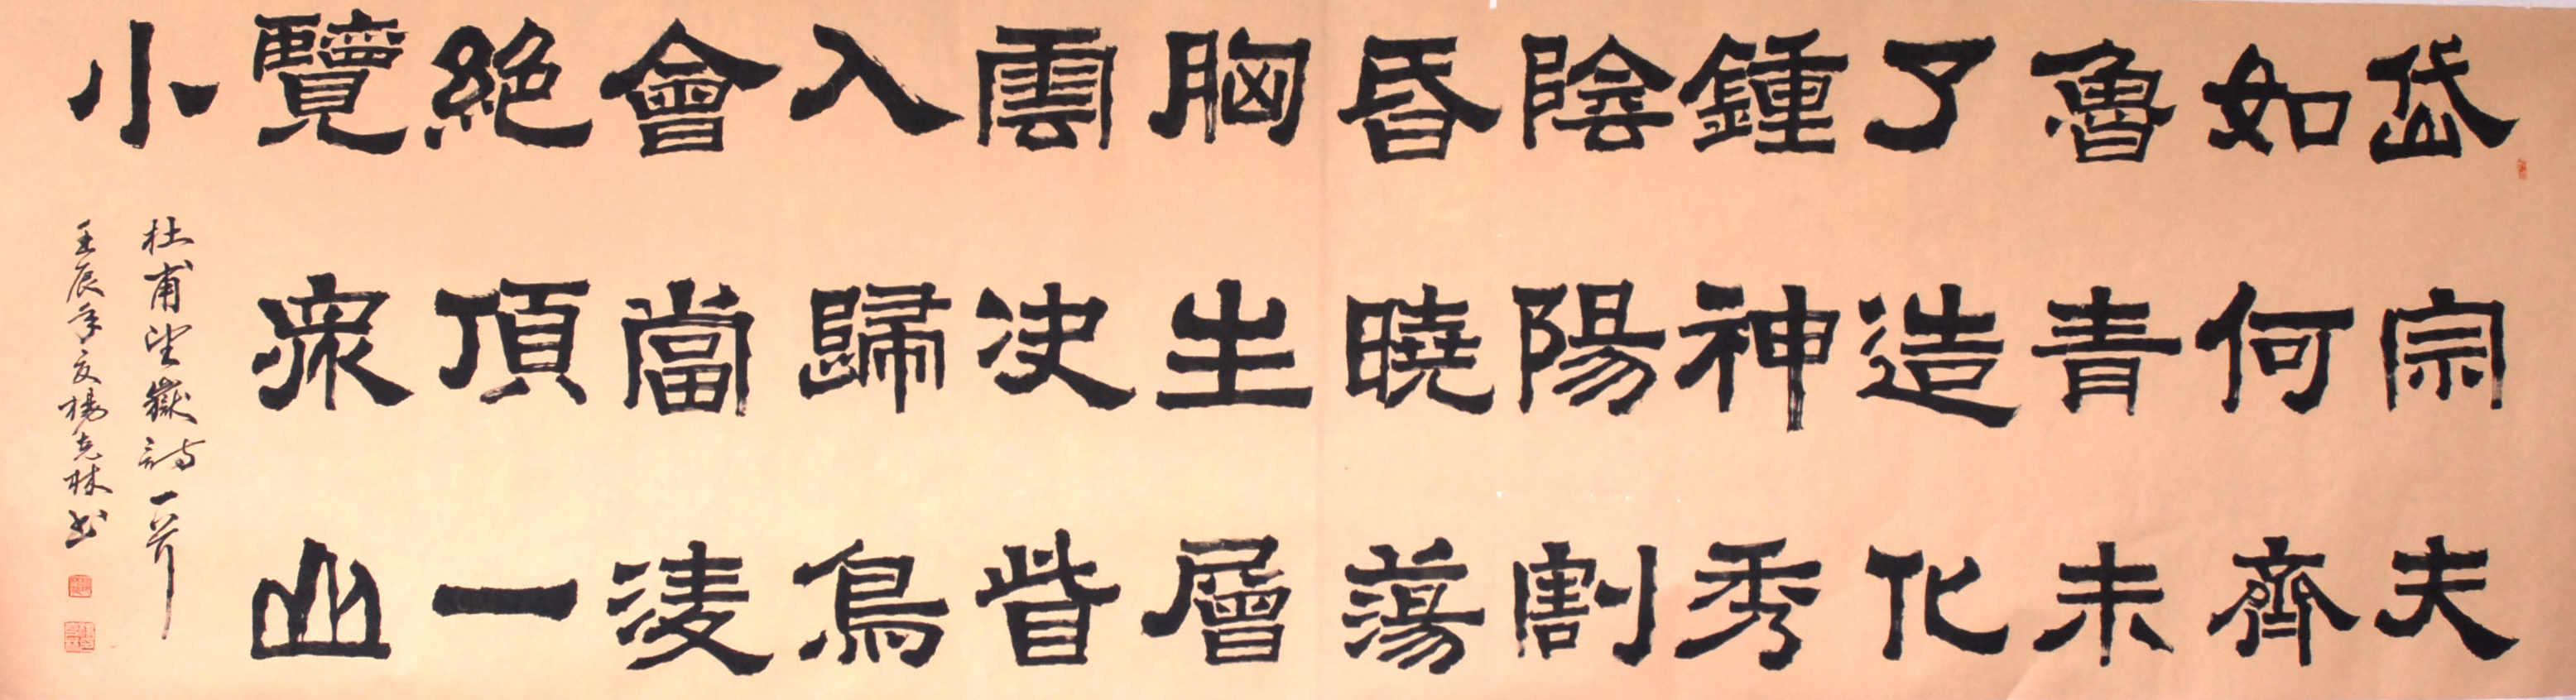 岱宗夫
如何齊
魯青未
了造化
鍾神秀
陰陽割
昏曉蕩
胸生層
雲決眥
入歸鳥
會當淩
絕頂一
覽衆山
小
杜甫望嶽詩一首
壬辰年夏楊克林书